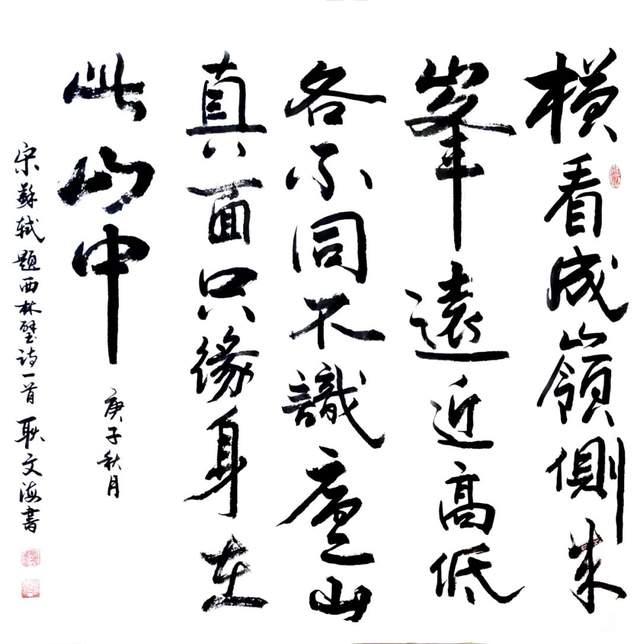 横看成嶺側成
峯遠近高低
各不同不識廬山
真面只緣身在
此山中
庚子秋月
宋蘇軾題西林壁诗一首耿文海書